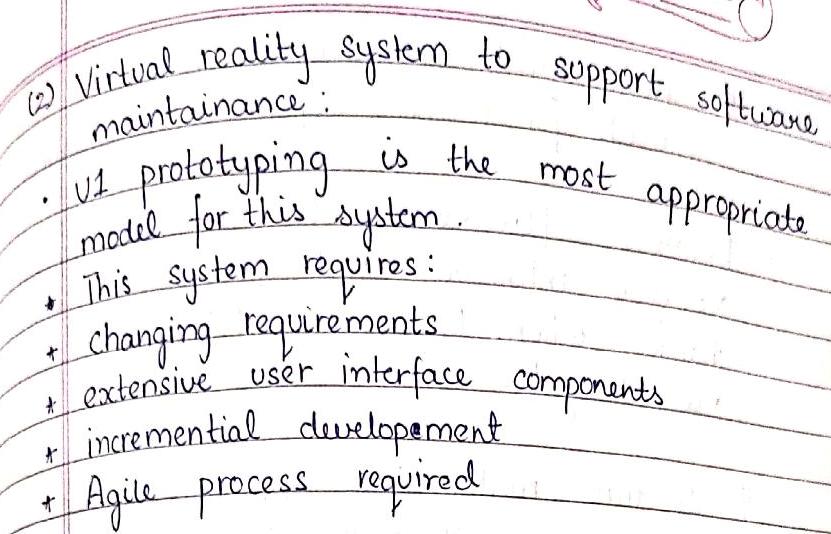 (2) Virtual reality system to support software
maintainance :
• U1 prototyping is the most appropriate
model for this system .
* This system requires :
* changing requirements
* extensive user interface components
* incremential developement
* Agile process required